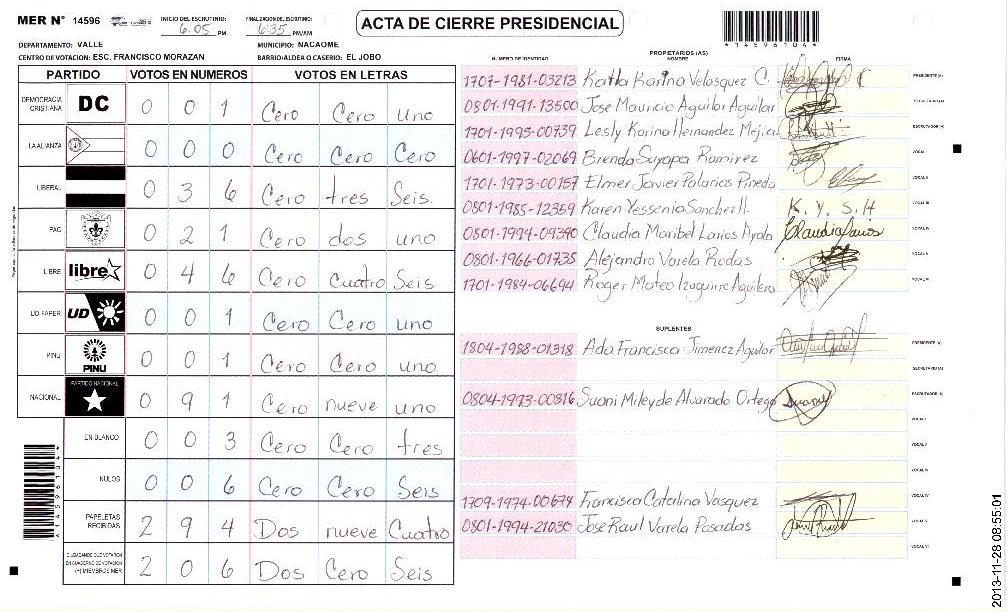 MER N° 14596 INICIO DEL ESCRUTINIO: 6:05 PM FINALIZACION DEL ESCRUTINIO: 6:35 PM/AM
ACTA DE CIERRE PRESIDENCIAL
*14596104*
DEPARTAMENTO: VALLE MUNICIPIO: NACAOME
CENTRO DE VOTACION: ESC. FRANCISCO MORAZAN BARRIO/ALDEA O CASERIO: EL JOBO
PARTIDO VOTOS EN NUMEROS VOTOS EN LETRAS
DEMOCRACIA CRISTIANA DC 0 0 1 Cero Cero uno
LA ALIANZA 0 0 0 Cero Cero Cero
LIBERAL 0 3 6 Cero tres Seis.
PAC 0 2 1 Cero dos uno
LIBRE libre 0 4 6 Cero Cuatro Seis
UD-FAPER UD 0 0 1 Cero Cero uno
PINU PINU 0 0 1 Cero Cero uno
NACIONAL PARTIDO NACIONAL 0 9 1 Cero nueve uno
EN BLANCO 0 0 3 Cero Cero tres
NULOS 0 0 6 Cero Cero Seis
PAPELETAS RECIBIDAS 2 9 4 Dos nueve Cuatro
CIUDADANOS QUE VOTARON EN CUADERNO DE VOTACION (+) MIEMBROS MER 2 0 6 Dos Cero Seis
*14596104*
PROPIETARIOS (AS)
NUMERO DE IDENTIDAD NOMBRE FIRMA
1707-1981-03213 Katla Karina Velasquez C. PRESIDENTE (A)
0801-1991-13500 Jose Mauricio Aguilar Aguilar SECRETARIO (A)
1701-1995-00739 Lesly Karina Hernandez Mejia ESCRUTADOR (A)
0601-1997-02069 Brenda Suyapa Ramirez VOCAL I
1701-1973-00157 Elmer Javier Palacios Pineda VOCAL II
0801-1985-12359 Karen Yessenia Sanchez H. K. Y. S. H VOCAL III
0801-1994-09390 Claudia Maribel Larios Ayala Claudia Larios VOCAL IV
0801-1966-01735 Alejandro Varela Rodas VOCAL V
1701-1984-06694 Roger Mateo Izaguirre Aguilera VOCAL VI
SUPLENTES
1804-1988-01318 Ada Francisca Jimenez Aguilar PRESIDENTE (A)
SECRETARIO (A)
0804-1973-00816 Suani Mileyde Alvarado Ortega Suani ESCRUTADOR (A)
VOCAL I
VOCAL II
VOCAL III
1709-1974-00674 Francisca Catalina Vasquez VOCAL IV
0801-1994-21030 Jose Raul Varela Posadas VOCAL V
VOCAL VI
2013-11-28 08:55:01